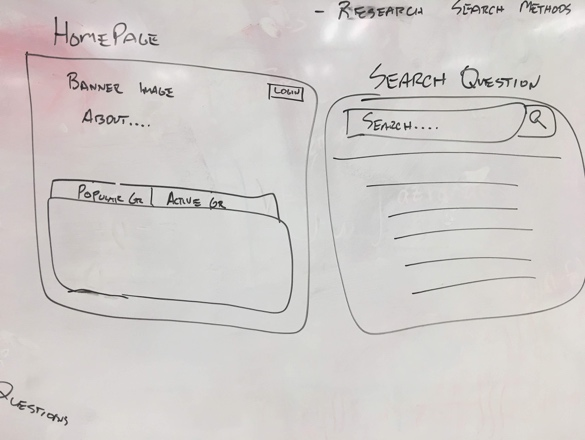 - RESEARCH SEARCH METHODS
HOMEPAGE
BANNER IMAGE
LOGIN
ABOUT....
POPULAR GR ACTIVE GR
SEARCH QUESTION
SEARCH....
QUESTIONS